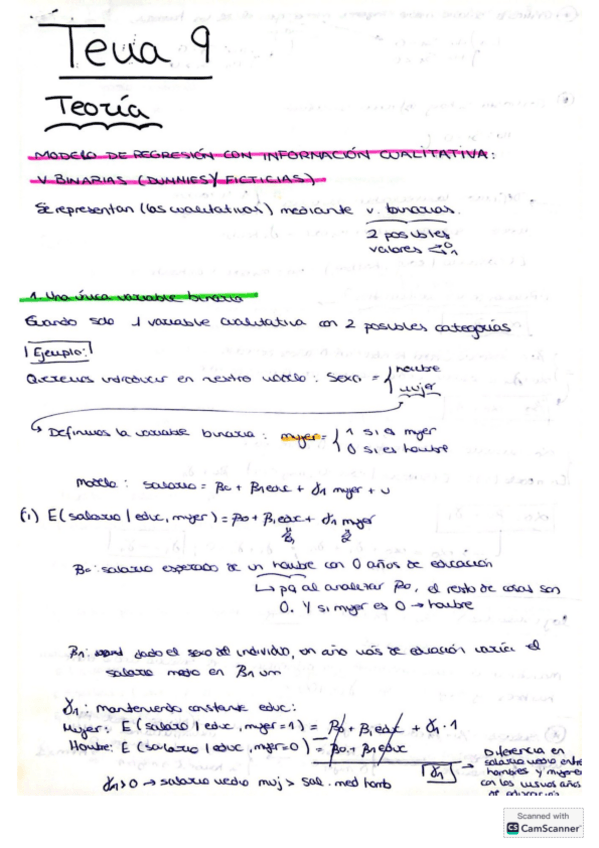 Tema 9
Teoría
MODELO DE REGRESIÓN CON INFORMACIÓN CUALITATIVA:
V. BINARIAS (DUMMIES Y FICTICIAS)
Se representan (las cualitativas) mediante v. binarias.
2 posibles
valores 0 1
1. Una única variable binaria
Cuando solo 1 variable cualitativa con 2 posibles categorías
Ejemplo:
Queremos introducir en nuestro modelo: Sexo = { hombre
mujer
↳ Definimos la variable binaria: mujer = { 1 si es mujer
0 si es hombre
Modelo: salario = β0 + β1educ + γ1 mujer + u
(i) E(salario | educ, mujer) = β0 + β1educ + γ1 mujer
β0: salario esperado de un hombre con 0 años de educación
↳ pq al analizar β0, el resto de cosas son
0. Y si mujer es 0 → hombre
β1: dado el sexo del individuo, un año más de educación varía el
salario medio en β1 um
γ1: manteniendo constante educ:
Mujer: E(salario | educ, mujer=1) = β0 + β1educ + γ1·1
Hombre: E(salario | educ, mujer=0) = β0 + β1educ
γ1 → Diferencia en
salario medio entre
hombres y mujeres
con los mismos años
de educación
γ1>0 → salario medio muj > sal. med homb
Scanned with
CS CamScanner